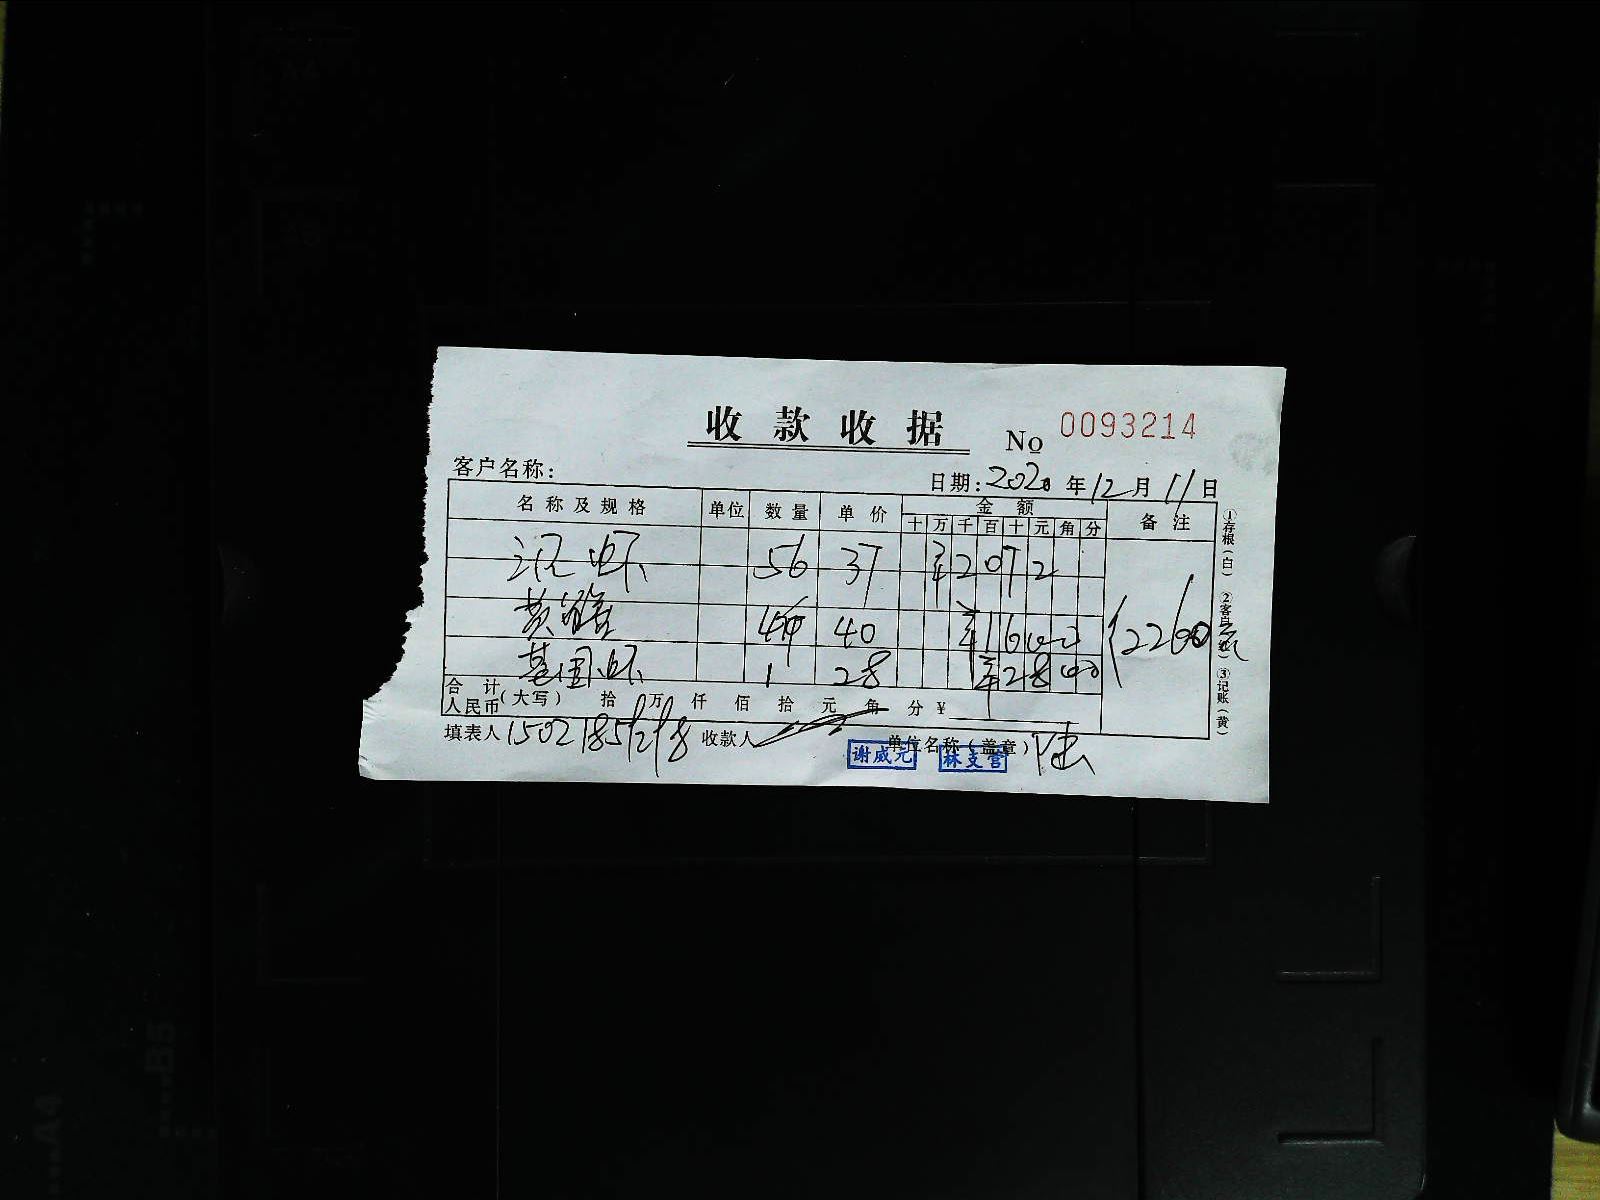 收款收据
No 0093214
客户名称:
日期: 2020 年 12 月 11 日
名称及规格 单位 数量 单价 金额 备注
十 万 千 百 十 元 角 分
沼虾 56 37 ¥2072
黄 40 ¥16000
基围虾 1 28 ¥2800
2260
合计 人民币 (大写) 拾 万 仟 佰 拾 元 角 分 ¥
填表人 收款人 单位名称(盖章)
谢威元 林支营
①存根(白) ②客户(红) ③记账(黄)